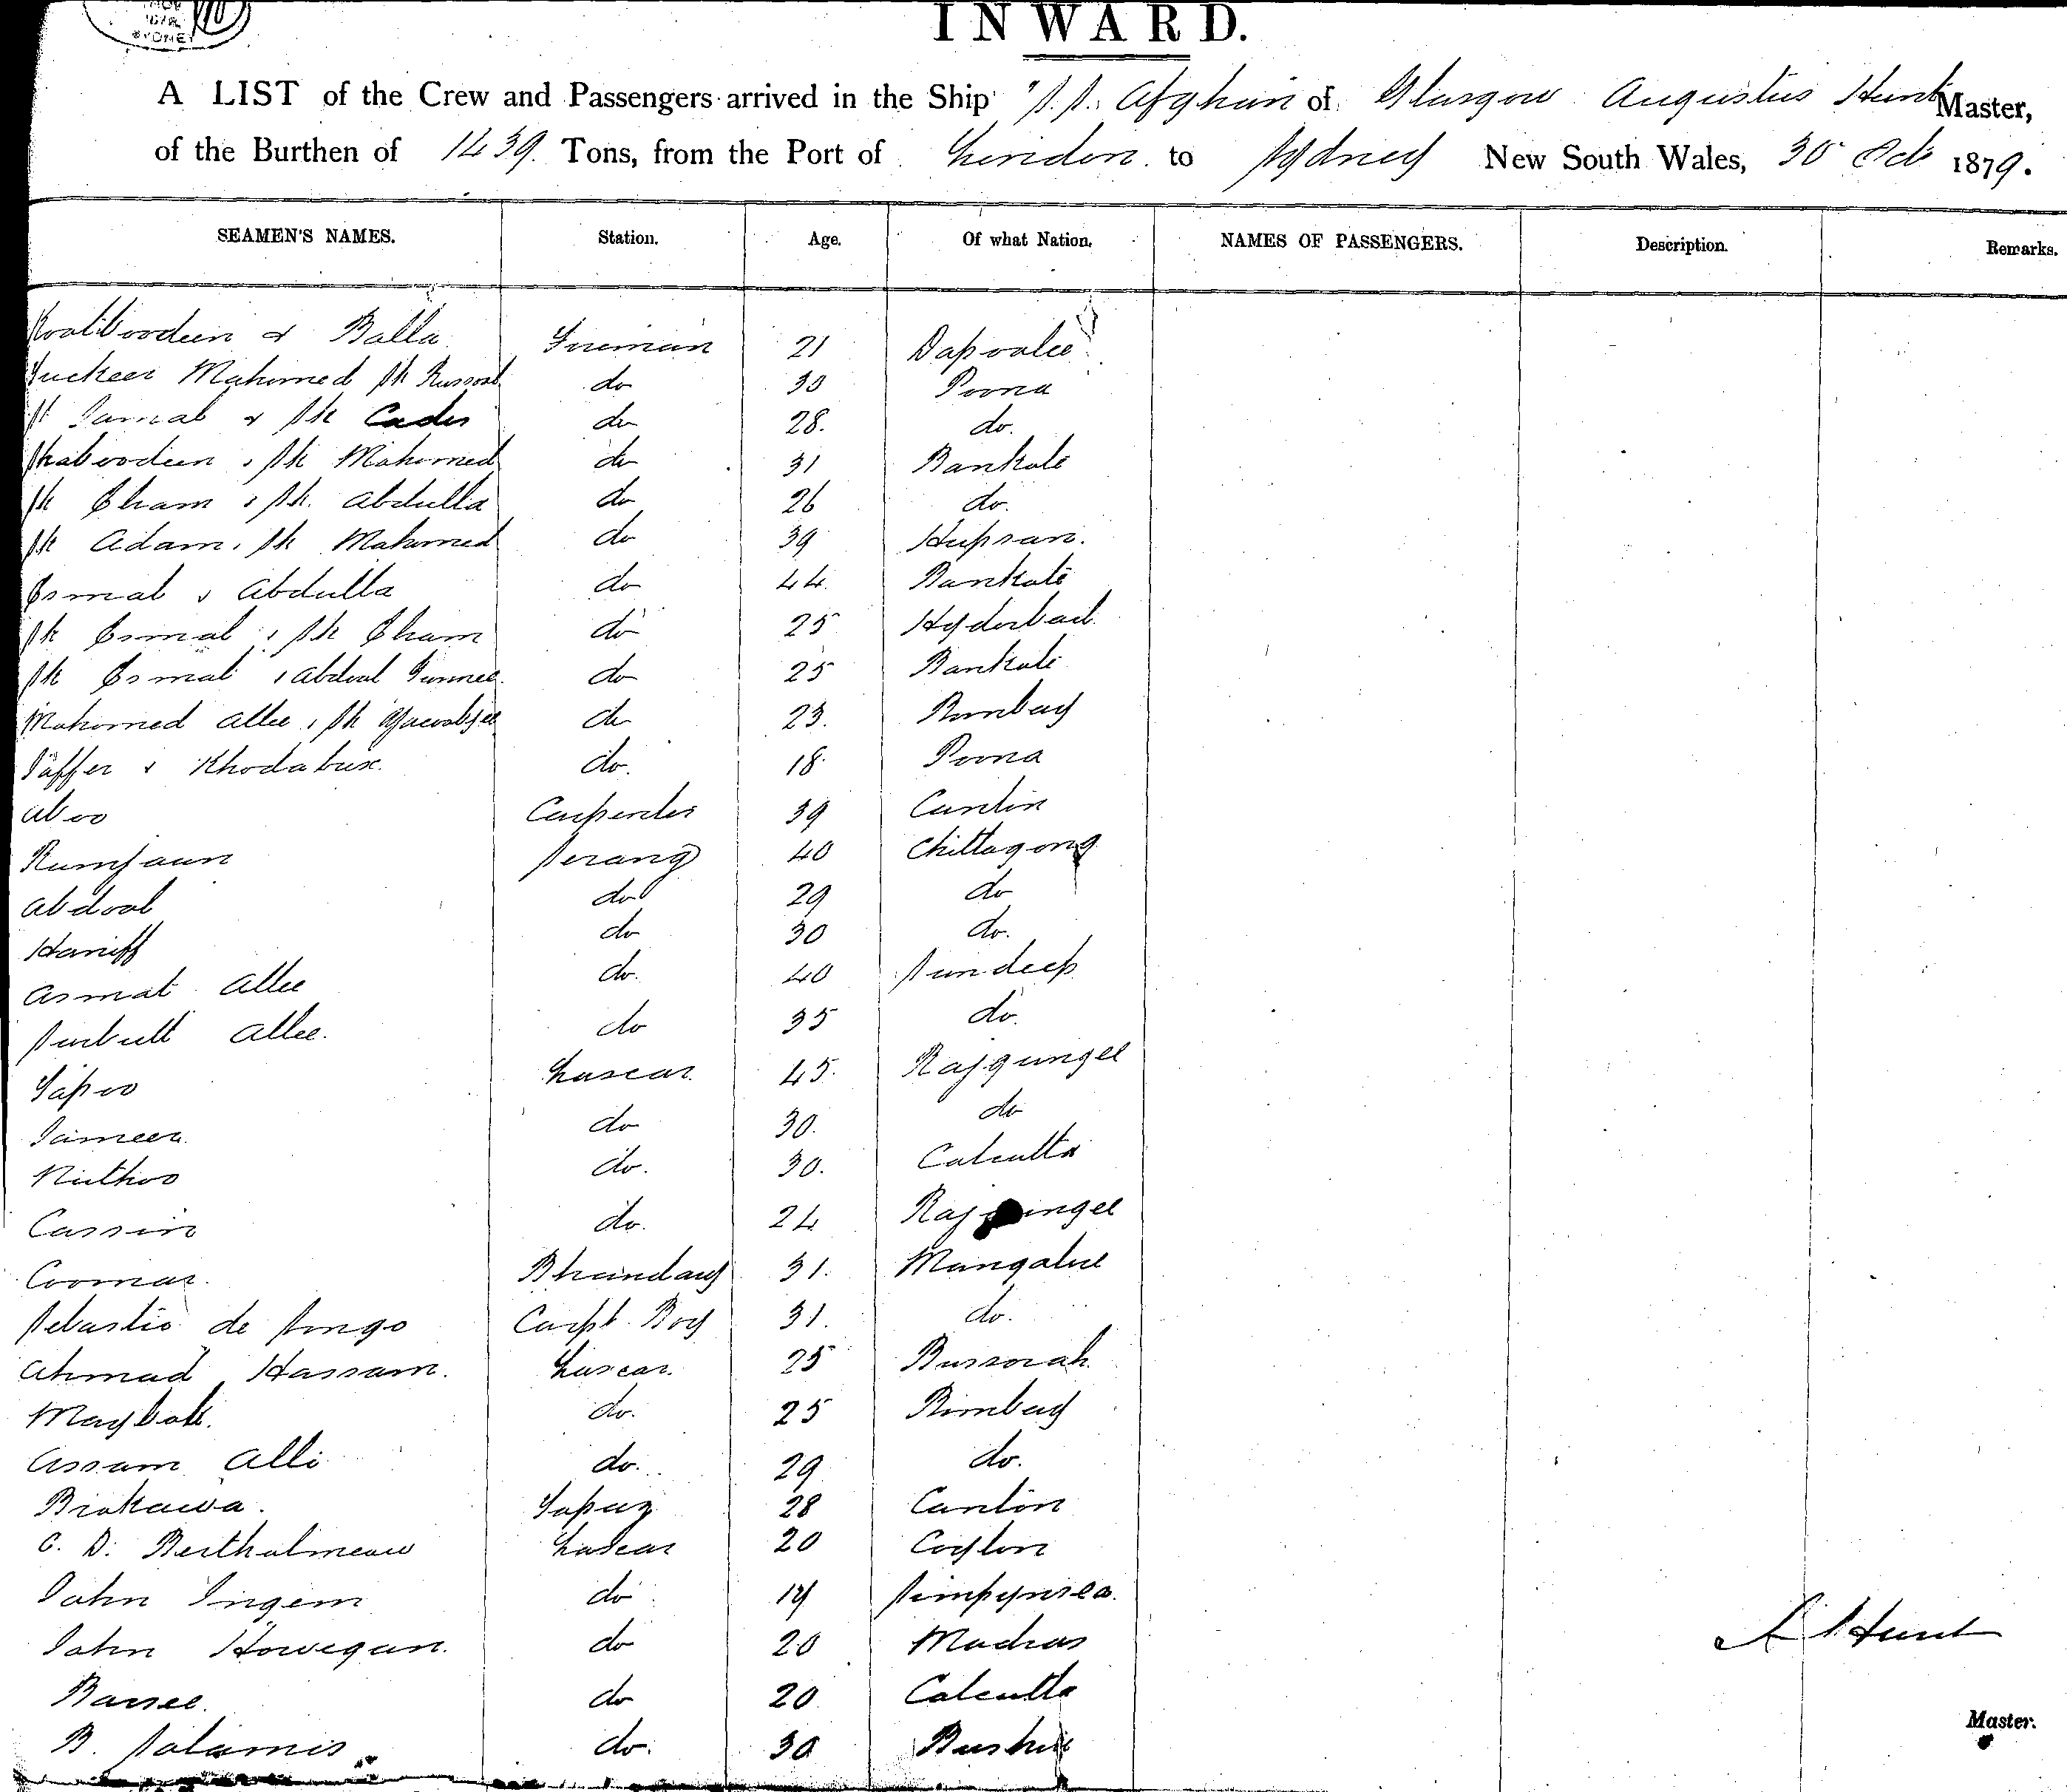 SYDNEY
INWARD.
A LIST of the Crew and Passengers arrived in the Ship "S.S. Afghan of Glasgow Augustus Hunt Master,
of the Burthen of 1439 Tons, from the Port of London to Sydney New South Wales, 30 Oct 1879.
SEAMEN'S NAMES. Station. Age. Of what Nation. NAMES OF PASSENGERS. Description. Remarks.
Balla Fireman 21 Dapoolee
Mahomed Sk Russool do 30 Poona
Jamal Sk Cader do 28. do.
Shaboodeen Sk Mahomed do 31 Bankote
Sk Sk. Abdulla do 26 do.
Sk Adam Sk Mahomed do 39 Hupsan.
Esmal Abdulla do 44. Bankote
Sk Esmal Sk do 25 Hyderbad.
Sk Esmal Abdool Gunnee do 25 Bankote
Mahomed Allee Sk do 23. Bombay
Jaffer Khodabux. do. 18. Poona
Aboo Carpenter 39 Canton
Rumjaun Serang 40 Chittagong
Abdool do 29 do
Haniff do 30 do.
Asmat Allee do. 40 Sundeep
Allee. do 35 do.
Lascar. 45. Rajgungee
Jameer. do 30. do
Nuthoo do. 30. Calcutta
Cassim do. 24 Rajgungee
Coomar. Bhandary 31. Mangalore
Sebastio de Carpt. Boy 31. do.
Ahmad Hassam. Lascar. 25 Bussorah.
do. 25 Bombay
Assam Alli do. 29 do.
Topaz 28 Canton
C. D. Bertholmeaw Lascar 20 Ceylon
John Ingem do 19
John Howegan. do 20 Madras
do 20 Calcutta
B. Salamis do. 30
A Hunt
Master.